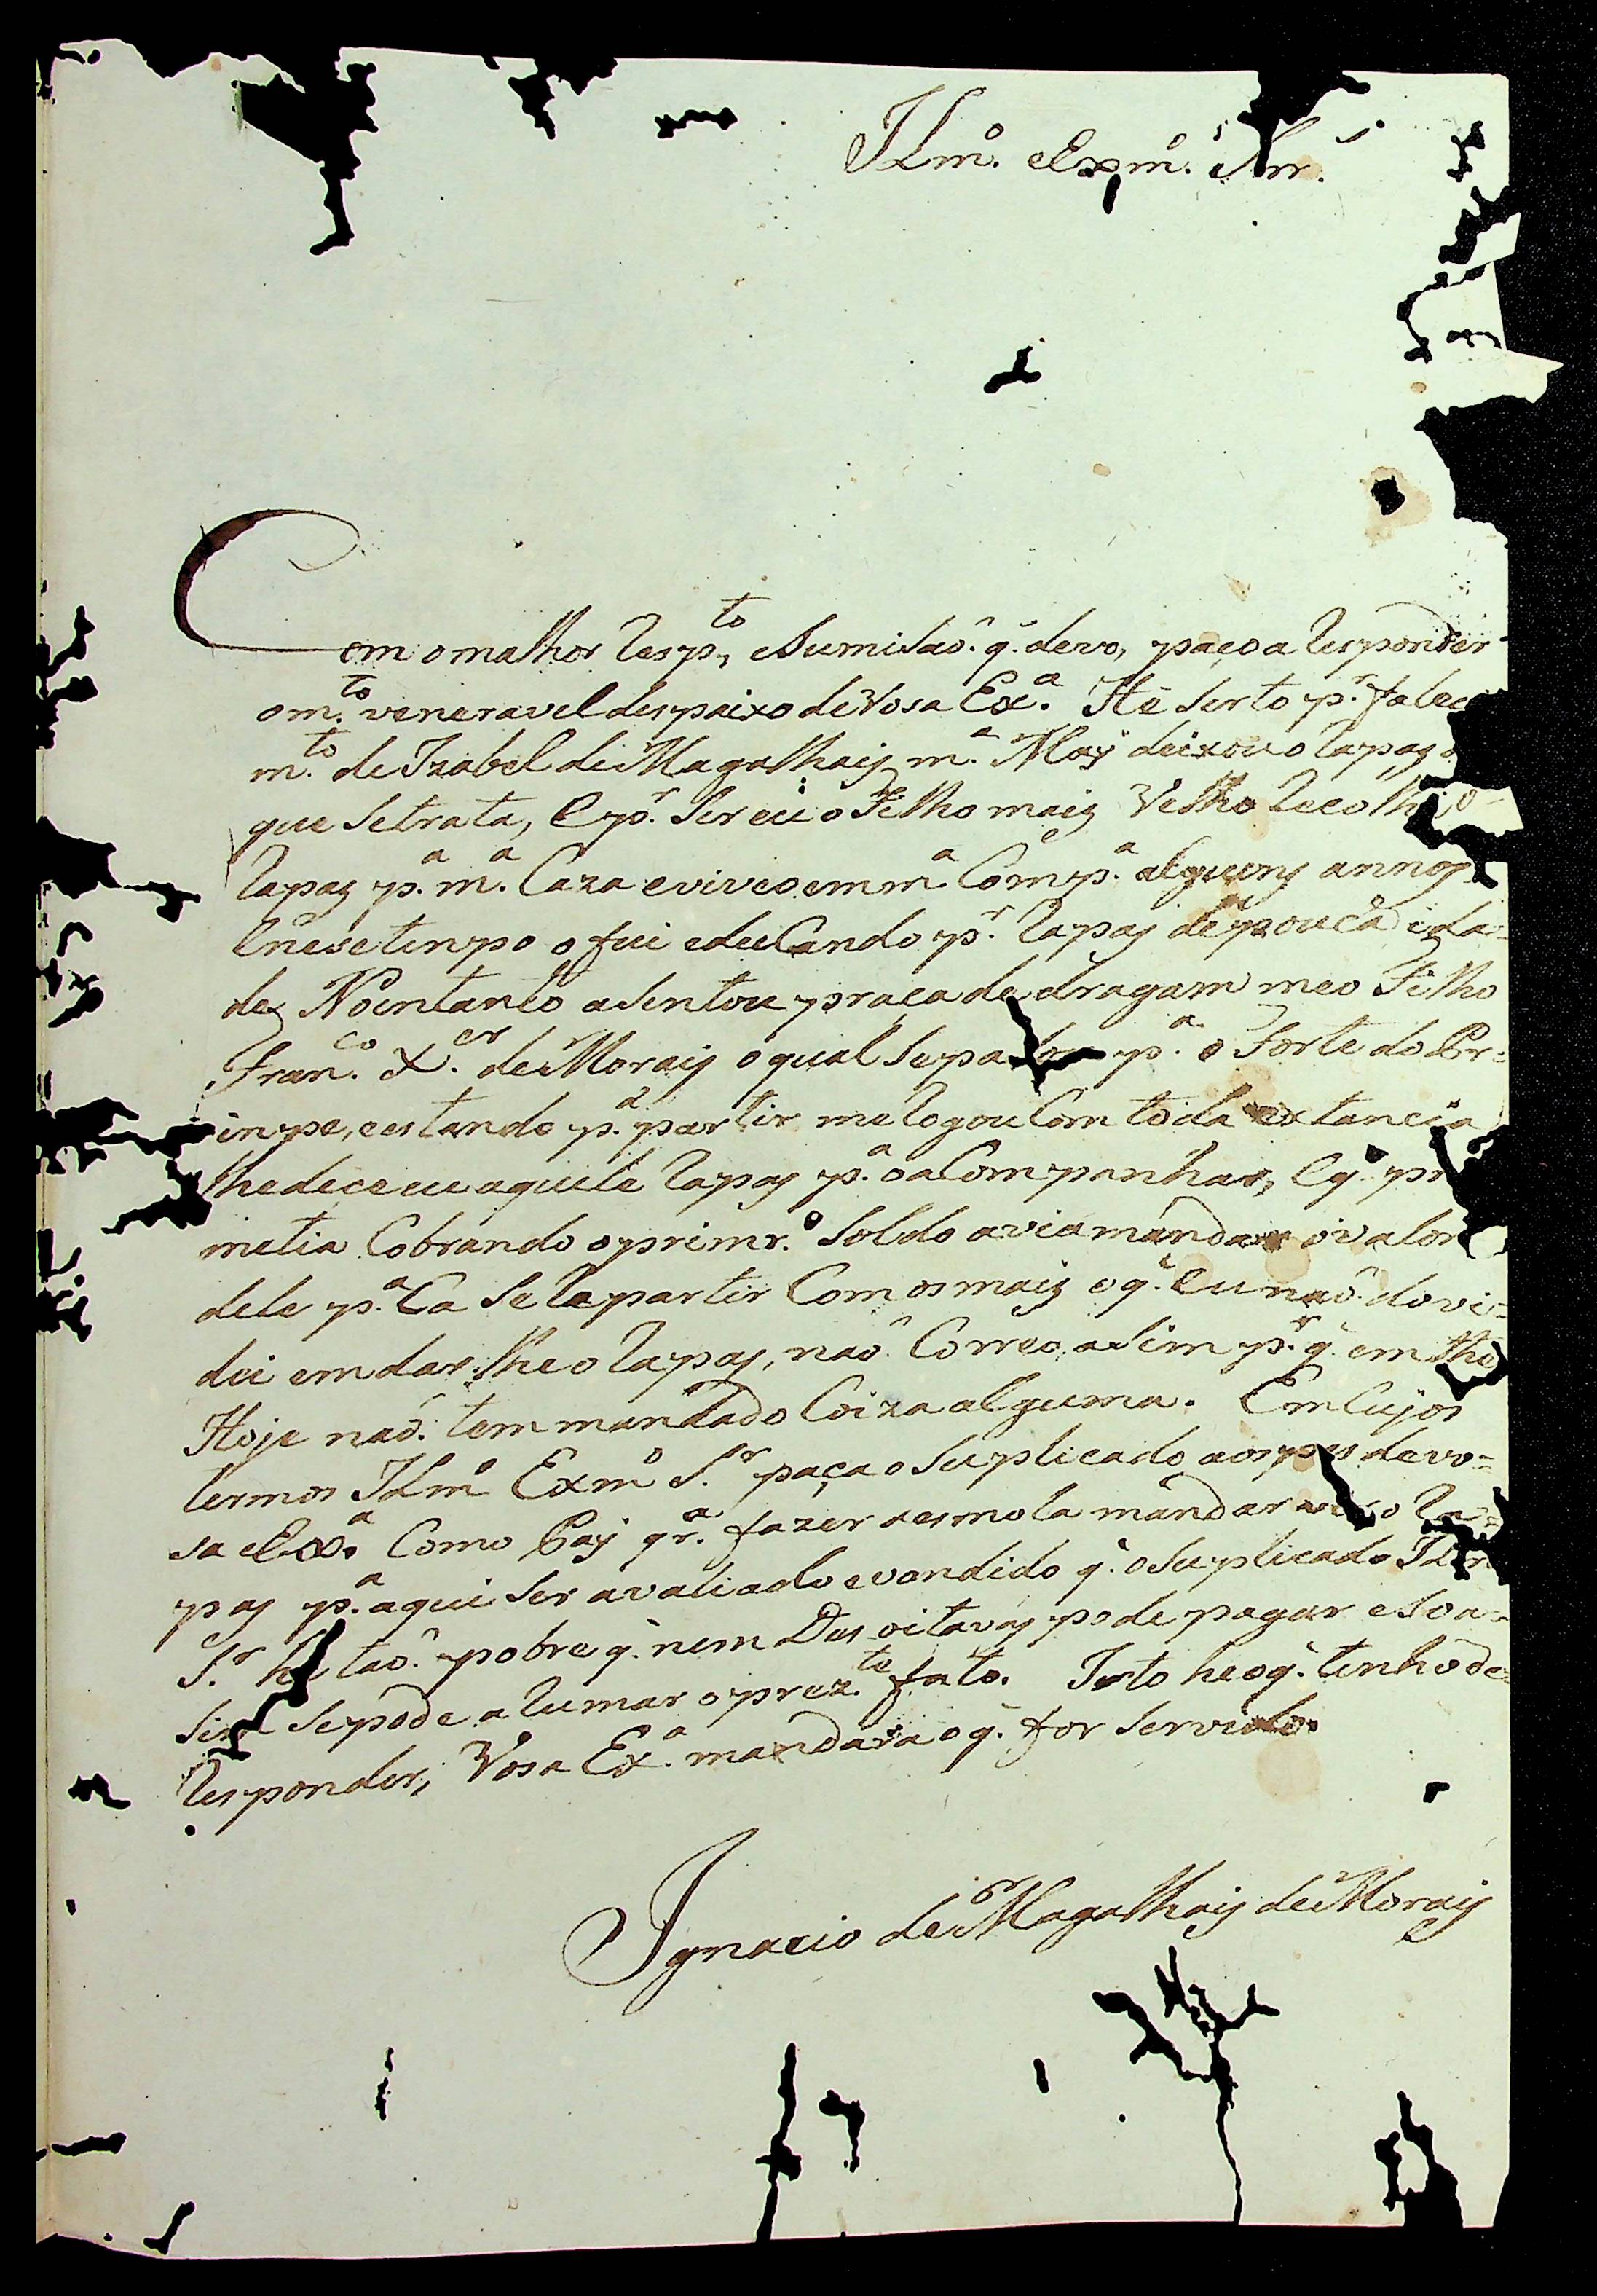 Illmo. e Exmo. Snr.
Com o malhor Resp.to, e Sumisaõ. q. devo, paço a Responder
o m.to veneravel despaixo de Vosa Ex.a Hé Serto p.r falec
m.to de Izabel de Magalhais m.a May deixou o Rapaz
que se trata, e p.r Ser eu o Filho maiz Velho Recolhi o
Rapaz p.a m.a Caza e viveo em m.a Comp.a alguns annos
e nese tenpo o fui eduCando p.r Rapas de pouca ida=
de, No intanto aSentou praça de dragam meo Filho
Fran.co X.er de Morais o qual Se pa p.a o Forte do Pr=
inpe, e estando p.a partir me Rogou Com toda extancia
lhe dece eu aquele Rapas p.a o aCompanhar, e q. pr
metia Cobrando o primr.o Soldo avia mandar o valor
dele p.a Ca Se Repartir Com os maiz o q. eu naõ. dovi=
dei em dar lhe o Rapas, naõ. Correo aSim p.r q. em the
Hoje naõ. tem mandado Coiza alguma. Em Cujos
termos Illmo Exmo S.r paça o Suplicado aos pes de vo=
sa Ex.a Como Pay q.r.a fazer a esmola mandar vir o Ra=
pas p.a aqui Ser avaliado e vendido q. o Suplicado Illm
S.r he taõ. pobre q. nem Das oitavas pode pagar e So a=
Sim Se pode aRumar o prez.te fato. Isto he o q. tenho de
Responder, Vosa Ex.a mandara o q. for Servido.
Ignacio de Magalhais de Morais